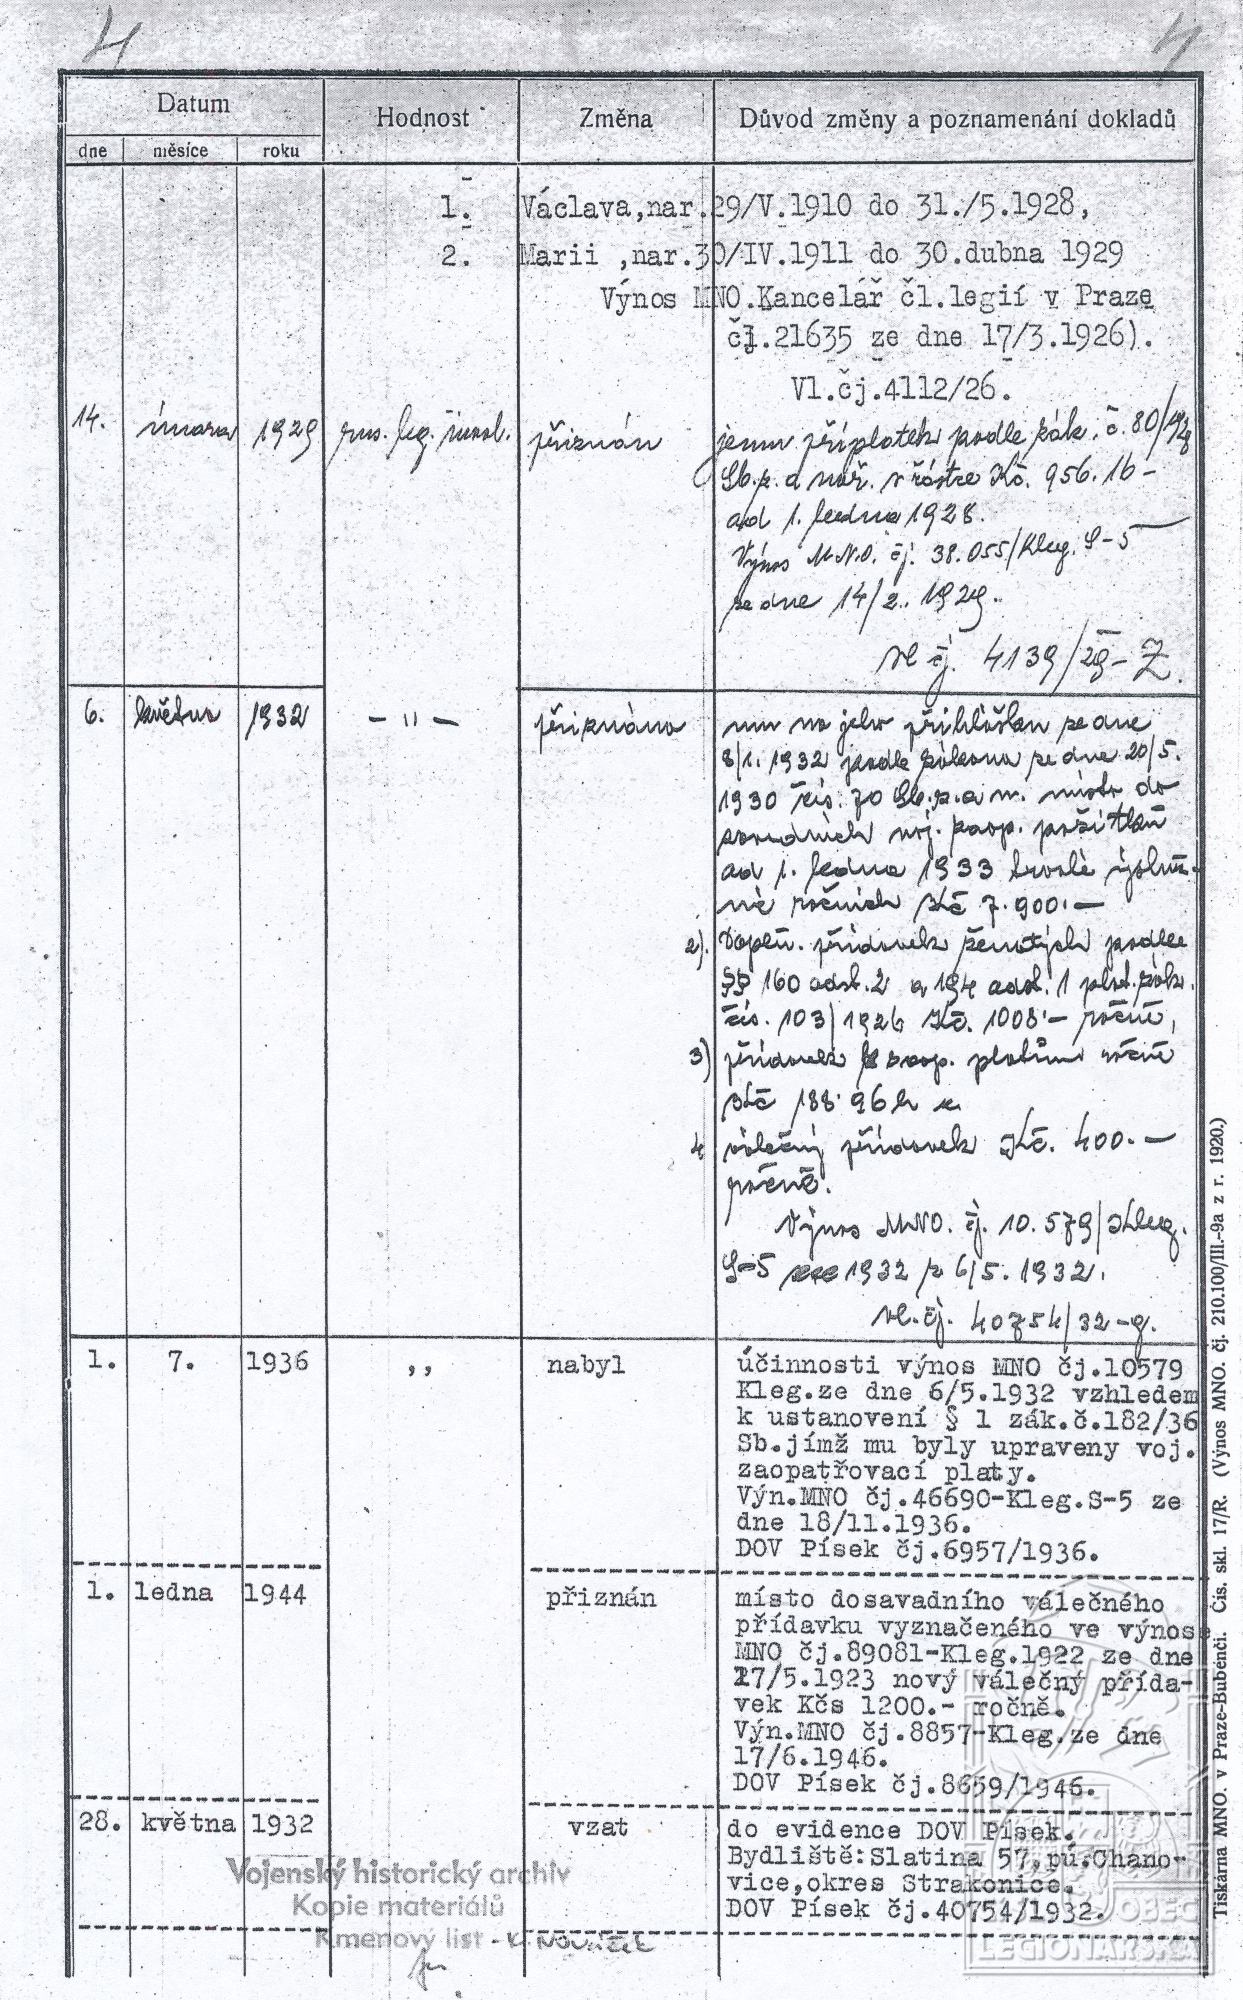 4
4
Datum
Hodnost
Změna
Důvod změny a poznamenání dokladů
dne
měsíce
roku
1. Václava,nar.29/V.1910 do 31./5.1928,
2. Marii ,nar.30/IV.1911 do 30.dubna 1929
Výnos MNO.Kancelář čl.legií v Praze
čj.21635 ze dne 17/3.1926).
Vl.čj.4112/26.
14. února 1929 rus. leg. inval. přiznán jemu příplatek podle zák. č. 80/1928
Sb.z. a nař. v částce Kč. 956.16-
od 1. ledna 1928.
Výnos M.N.O. čj. 38.055/Kleg. S-5
ze dne 14/2. 1929.
vl čj. 4139/29-Z.
6. května 1932 - " - přiznáno mu na jeho přihlášku ze dne
8/1. 1932 podle zákona ze dne 20/5.
1930 čís. 70 Sb.z.a n. místo do
savadních voj. zaop. požitků
od 1. ledna 1933 trvalé výsluž-
né ročních Kč 7.900.-
2). Doplň. přídavek ženatých podle
§§ 160 odst. 2 a 194 odst. 1 plat. zák.
čís. 103/1926 Kč. 1008.- ročně,
3) přídavek k zaop. platům ročně
Kč 188.96 h a
4 válečný přídavek Kč. 400.-
ročně.
Výnos MNO. čj. 10.579/Kleg.
S-5 1932 z 6/5. 1932.
vl. čj. 40754/32-g.
1. 7. 1936 ,, nabyl účinnosti výnos MNO čj.10579
Kleg.ze dne 6/5.1932 vzhledem
k ustanovení § 1 zák.č.182/36
Sb.jímž mu byly upraveny voj.
zaopatřovací platy.
Výn.MNO čj.46690-Kleg.S-5 ze
dne 18/11.1936.
DOV Písek čj.6957/1936.
1. ledna 1944 přiznán místo dosavadního válečného
přídavku vyznačeného ve výnose
MNO čj.89081-Kleg.1922 ze dne
17/5.1923 nový válečný přída-
vek Kčs 1200.- ročně.
Výn.MNO čj.8857-Kleg.ze dne
17/6.1946.
DOV Písek čj.8659/1946.
28. května 1932 vzat do evidence DOV Písek.
Bydliště:Slatina 57,pú.Chano-
vice,okres Strakonice.
DOV Písek čj.40754/1932.
Vojenský historický archiv
Kopie materiálů
Kmenový list - K NOVÁČEK
OBEC
LEGIONÁŘSKÁ
Tiskárna MNO. v Praze-Bubenči. Čís. skl. 17/R. (Výnos MNO. čj. 210.100/III.-9a z r. 1920.)